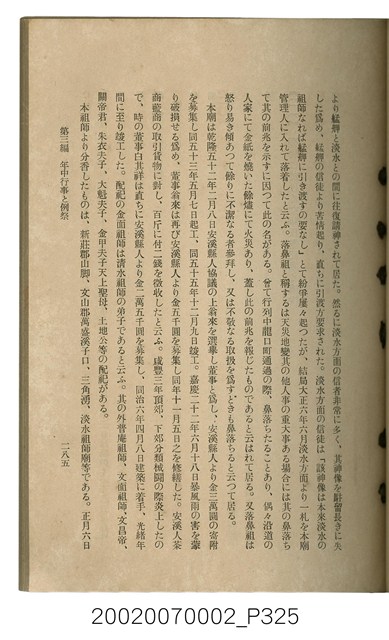 より艋舺と淡水との間に往復請神されて居た。然るに淡水方面の信者非常に多く、其神像を駐留長きに失
した爲め、艋舺の信徒より苦情起り、直ちに引渡方要求された。淡水方面の信徒は「該神像は本來淡水の
祖師なれば艋舺に引き渡すの要なし」とて紛爭屢々起つたが、結局大正六年六月淡水方面より一札を本廟
管理人に入れて落着したと云ふ。落鼻祖と稱するは天災地變其の他人事の重大事ある場合には其の鼻落ち
て其の前兆を示すに因つて此の名がある。曾て行列中龍口町通過の際、鼻落ちたることあり、偶々沿道の
人家にて金紙を燒いた餘燼にて火災あり、蓋し此の前兆を報じたものであると云はれて居る。又落鼻祖は
怒り易き傾あつて餘りに不潔なる者參拜し、又は不敬なる取扱を爲すときも鼻落ちると云つて居る。
本廟は乾隆五十二年二月八日安溪縣人協議の上翁來を選擧し董事と爲し、安溪縣人より金三萬圓の寄附
を募集し同五十三年五月七日起工、同五十五年十二月九日竣工。嘉慶二十二年六月十八日暴風雨の害を蒙
り破損せる爲め、董事翁來は再び安溪縣人より金五千圓を募集し同年十一月五日之を修繕した。安溪人茶
商藍商の取引貨物に對し、百斤に付二錢を徵收したと云ふ。咸豐三年頂郊、下郊分類械鬪の際炎上したの
で、時の董事白其祥は直ちに安溪縣人より金二萬五千圓を募集し、同治六年四月八日建築に着手、光緖年
間に至り竣工した。配祀の金面祖師は清水祖師の弟子であると云ふ。其の外普庵祖師、文面祖師、文昌帝、
關帝君、朱衣夫子、大魁夫子、金甲夫子天上聖母、土地公等の配祀がある。
本祖師より分香したものは、新莊郡山脚、文山郡萬盛溪子口、三角湧、淡水祖師廟等である。正月六日
第三編　年中行事と例祭
二八五
20020070002_P325